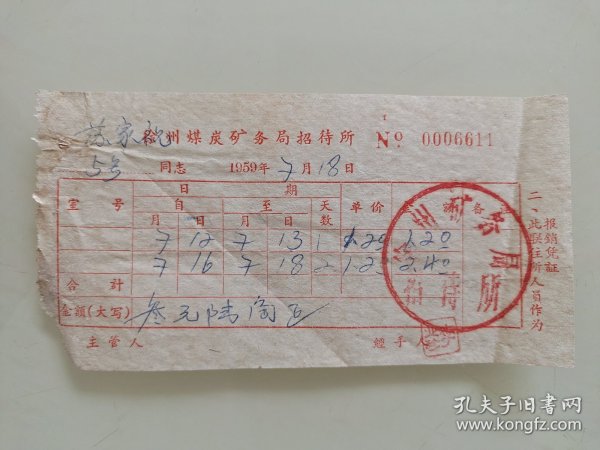 徐州煤炭矿务局招待所 No 0006611
5号 同志 1959年7月18日
日 期
室 号 自 至 天数 单价 金额 备
月 日 月 日
7 12 7 13 1 1.20 1.20
7 16 7 18 2 1.2 2.40
合 計
金额(大写) 叁元陆角正
主管人 經手人
二、此联住所人员作为
报销凭证
徐州矿务局
招待所
孔夫子旧书网
www.kongfz.com